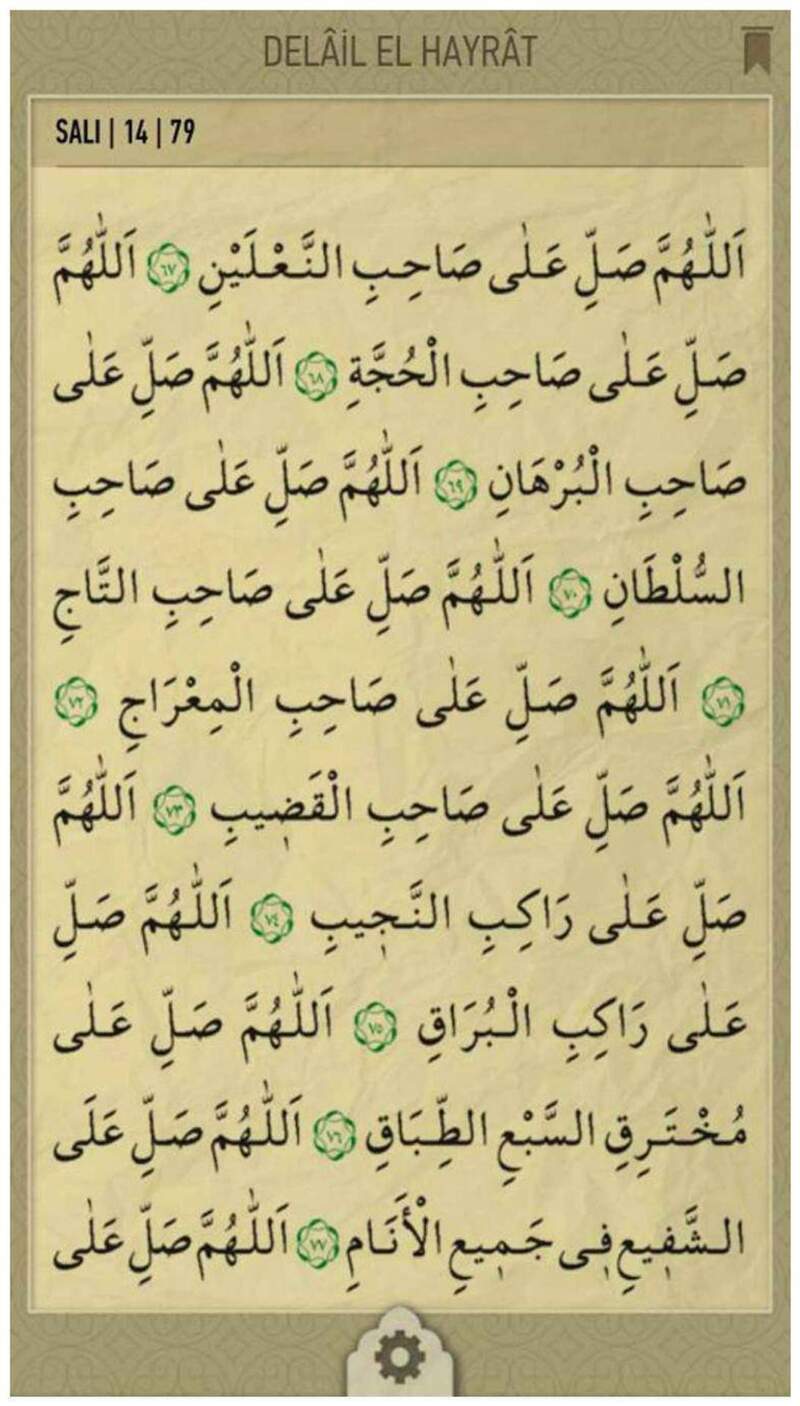 DELÂİL EL HAYRÂT
SALI | 14 | 79
اَللّٰهُمَّ صَلِّ عَلٰى صَاحِبِ النَّعْلَيْنِ ٦٧ اَللّٰهُمَّ
صَلِّ عَلٰى صَاحِبِ الْحُجَّةِ ٦٨ اَللّٰهُمَّ صَلِّ عَلٰى
صَاحِبِ الْبُرْهَانِ ٦٩ اَللّٰهُمَّ صَلِّ عَلٰى صَاحِبِ
السُّلْطَانِ ٧٠ اَللّٰهُمَّ صَلِّ عَلٰى صَاحِبِ التَّاجِ
٧١ اَللّٰهُمَّ صَلِّ عَلٰى صَاحِبِ الْمِعْرَاجِ ٧٢
اَللّٰهُمَّ صَلِّ عَلٰى صَاحِبِ الْقَضٖيبِ ٧٣ اَللّٰهُمَّ
صَلِّ عَلٰى رَاكِبِ النَّجٖيبِ ٧٤ اَللّٰهُمَّ صَلِّ
عَلٰى رَاكِبِ الْبُرَاقِ ٧٥ اَللّٰهُمَّ صَلِّ عَلٰى
مُخْتَرِقِ السَّبْعِ الطِّبَاقِ ٧٦ اَللّٰهُمَّ صَلِّ عَلَى
الشَّفٖيعِ فٖى جَمٖيعِ الْأَنَامِ ٧٧ اَللّٰهُمَّ صَلِّ عَلٰى